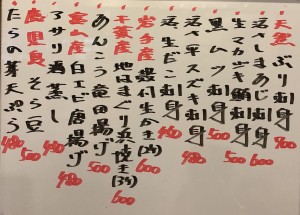 天然 ぶり刺身 700
活〆さしまあじ刺身 500
生マカジキ鮪刺身 500
黒ムツ刺身 500
活〆平スズキ刺身
活生だこ刺身 480
岩手産 殻付生かき(1ヶ) 600
千葉産 地はまぐり浜焼き(3ヶ) 600
あんこう竜田揚げ 500
富山産 白エビ唐揚げ 480
アサリ酒蒸し 480
鹿児島 そら豆 500
たらの芽天ぷら 480